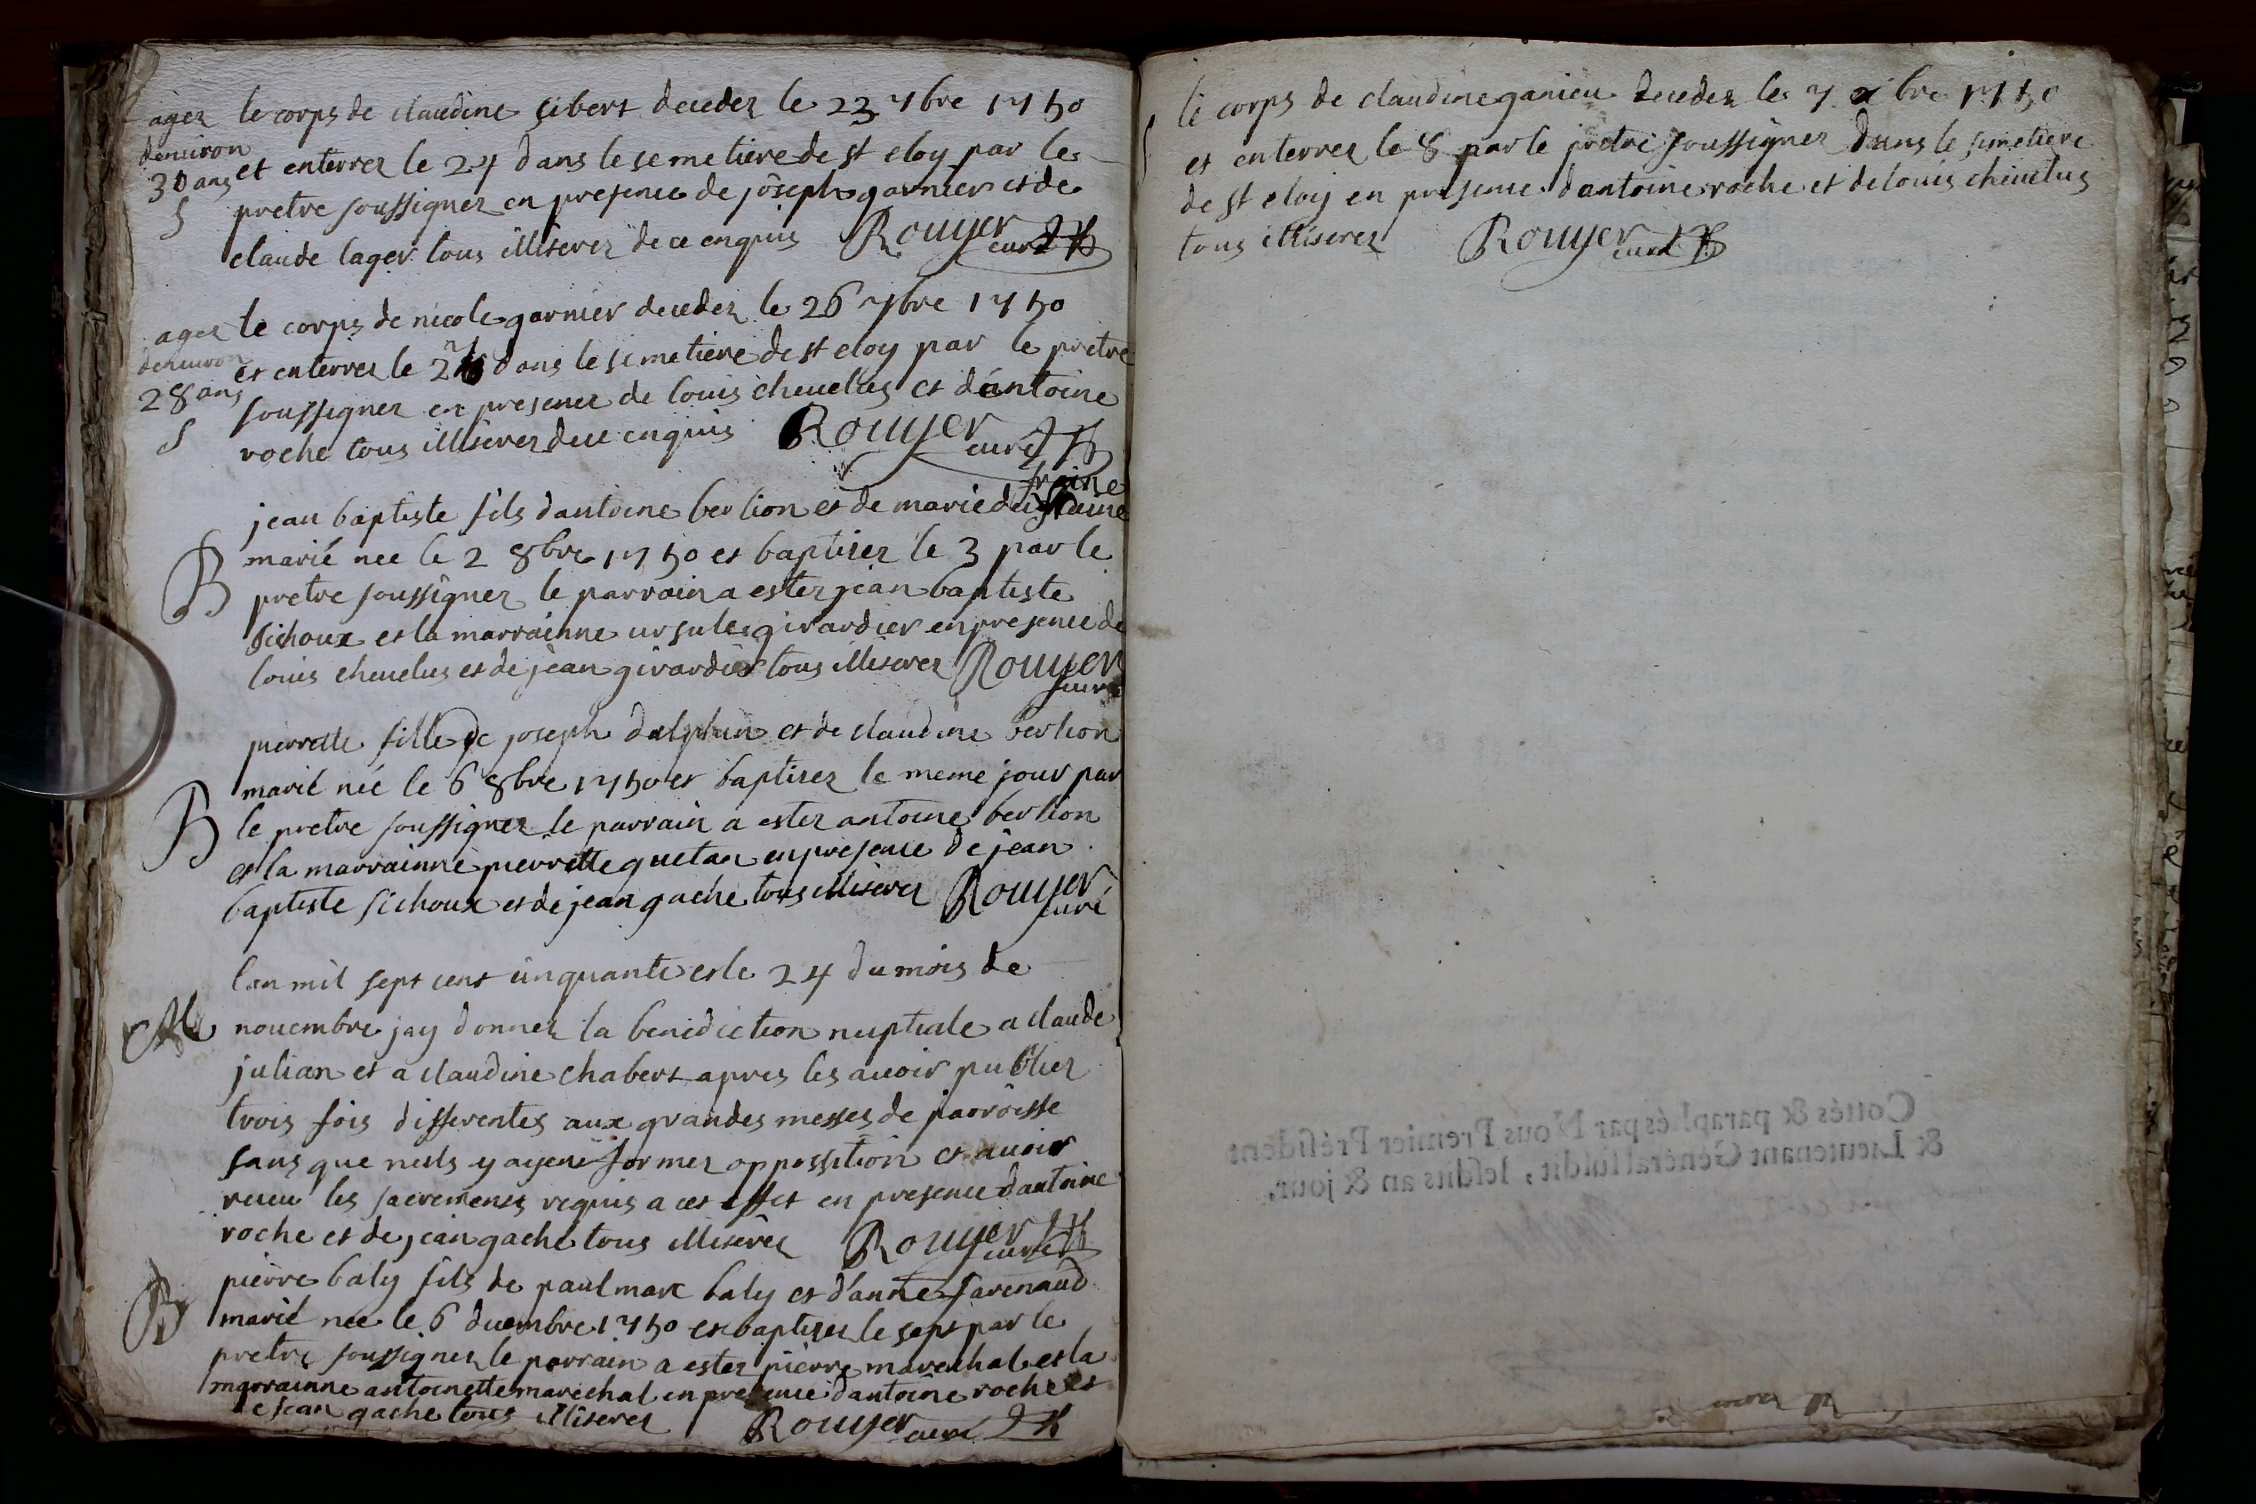 agez
denuiron
30 ans
S
le corps de claudine sibert decedez le 23 7bre 1750
et enterrez le 24 dans le semetiere de st eloy par le
pretre soussignez en presence de joseph garnier et de
claude lager tous illiserez de ce enquis Rouyer curé
agez
denuiron
28 ans
S
le corps de nicole garnier decedez le 26 7bre 1750
et enterrez le 27 dans le semetiere de st eloy par le pretre
soussignez en presence de louis cheuelus et dantoine
roche tous illiserez de ce enquis Rouyer curé
fraine
jean baptiste fils dantoine berlion et de marie
B
marié nee le 2 8bre 1750 et baptisez le 3 par le
pretre soussignez le parrain a estez jean baptiste
sichoux et la marrainne ursule girardier en presence de
louis cheuelus et de jean girardier tous illiserez Rouyer
curé
pierrette fille de joseph dalphin et de claudine berlion
B
marié néé le 6 8bre 1750 et baptisez le meme jour par
le pretre soussignez le parrain a estez antoine berlion
et la marrainne pierrette quetan en presence de jean
baptiste sichoux et de jean gache tous illiserez Rouyer
curé
lan mil sept cent cinquante et le 24 du mois de
M
nouembre jay donnez la benediction nuptiale a claude
julian et a claudine chabert apres les auoir publiez
trois fois differentes aux grandes messes de parroisse
sans que nuls y ayent formez oppossition et auoir
receu les sacrements requis a cet effet en presence dantoine
roche et de jean gache tous illiserez Rouyer curé
B
pierre baly fils de paul marc baly et d'anne farenaud
marié neé le 6 decembre 1750 et baptisez le sept par le
pretre soussignez le parrain a estez pierre marechal et la
marrainne antoinette marechal en presence dantoine roche et
de jean gache tous illiserez Rouyer curé
S
le corps de claudine ganieu decedez le 7 xbre 1750
et enterrez le 8 par le pretre soussignez dans le simetiere
de st eloy en presence dantoine roche et de louis cheuelus
tous illiserez Rouyer curé
Cottés & paraphés par Nous Premier Président
& Lieutenant Général susdit, lesdits an & jour,